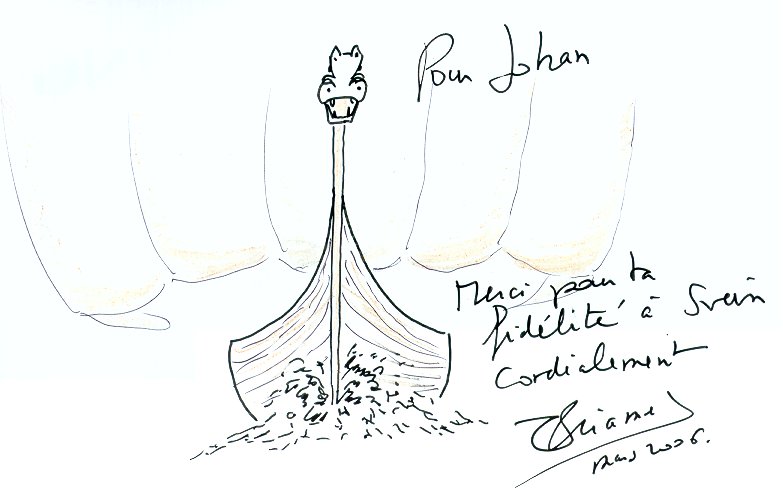 Pour Johan
Merci pour ta
fidélité à Svein
cordialement
mars 2006.